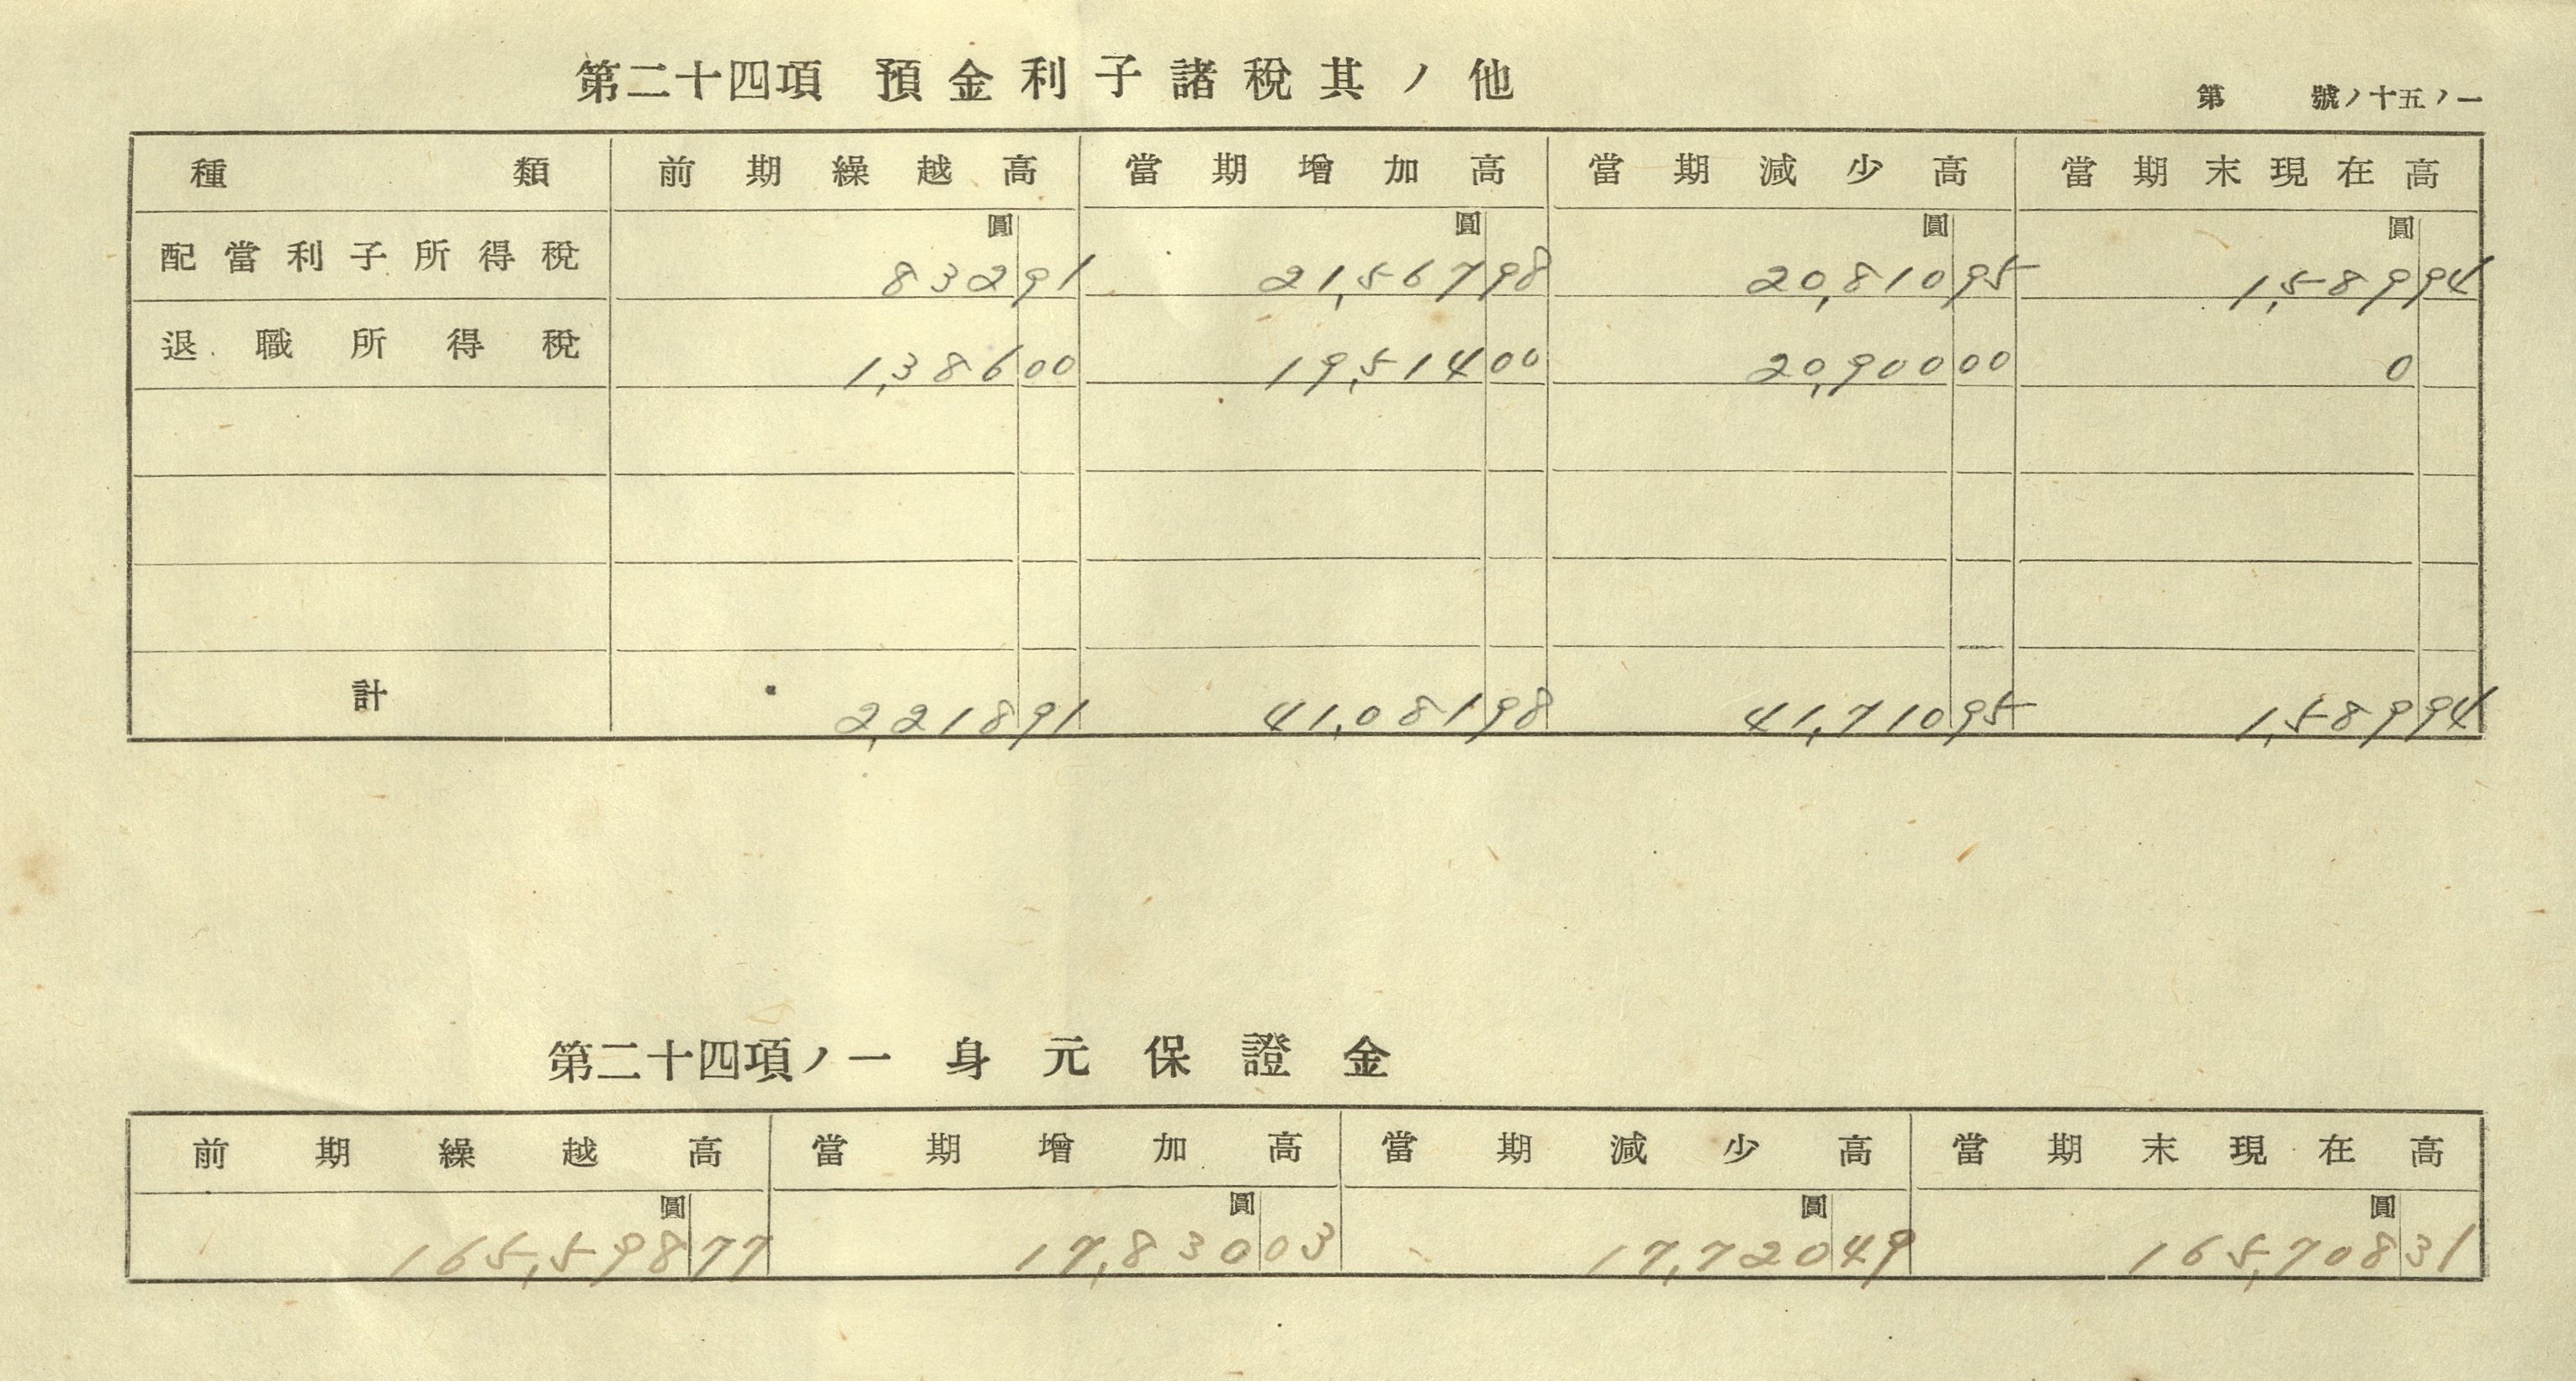 第二十四項 預金利子諸稅其ノ他
第 號ノ十五ノ一
種類 前期繰越高 當期增加高 當期減少高 當期末現在高
圓 圓 圓 圓
配當利子所得稅 832 91 21,567 98 20,810 95 1,589 94
退職所得稅 1,386 00 19,514 00 20,900 00 0
計 2,218 91 41,081 98 41,710 95 1,589 94
第二十四項ノ一 身元保證金
前期繰越高 當期增加高 當期減少高 當期末現在高
圓 圓 圓 圓
165,598 77 17,830 03 17,720 49 165,708 31